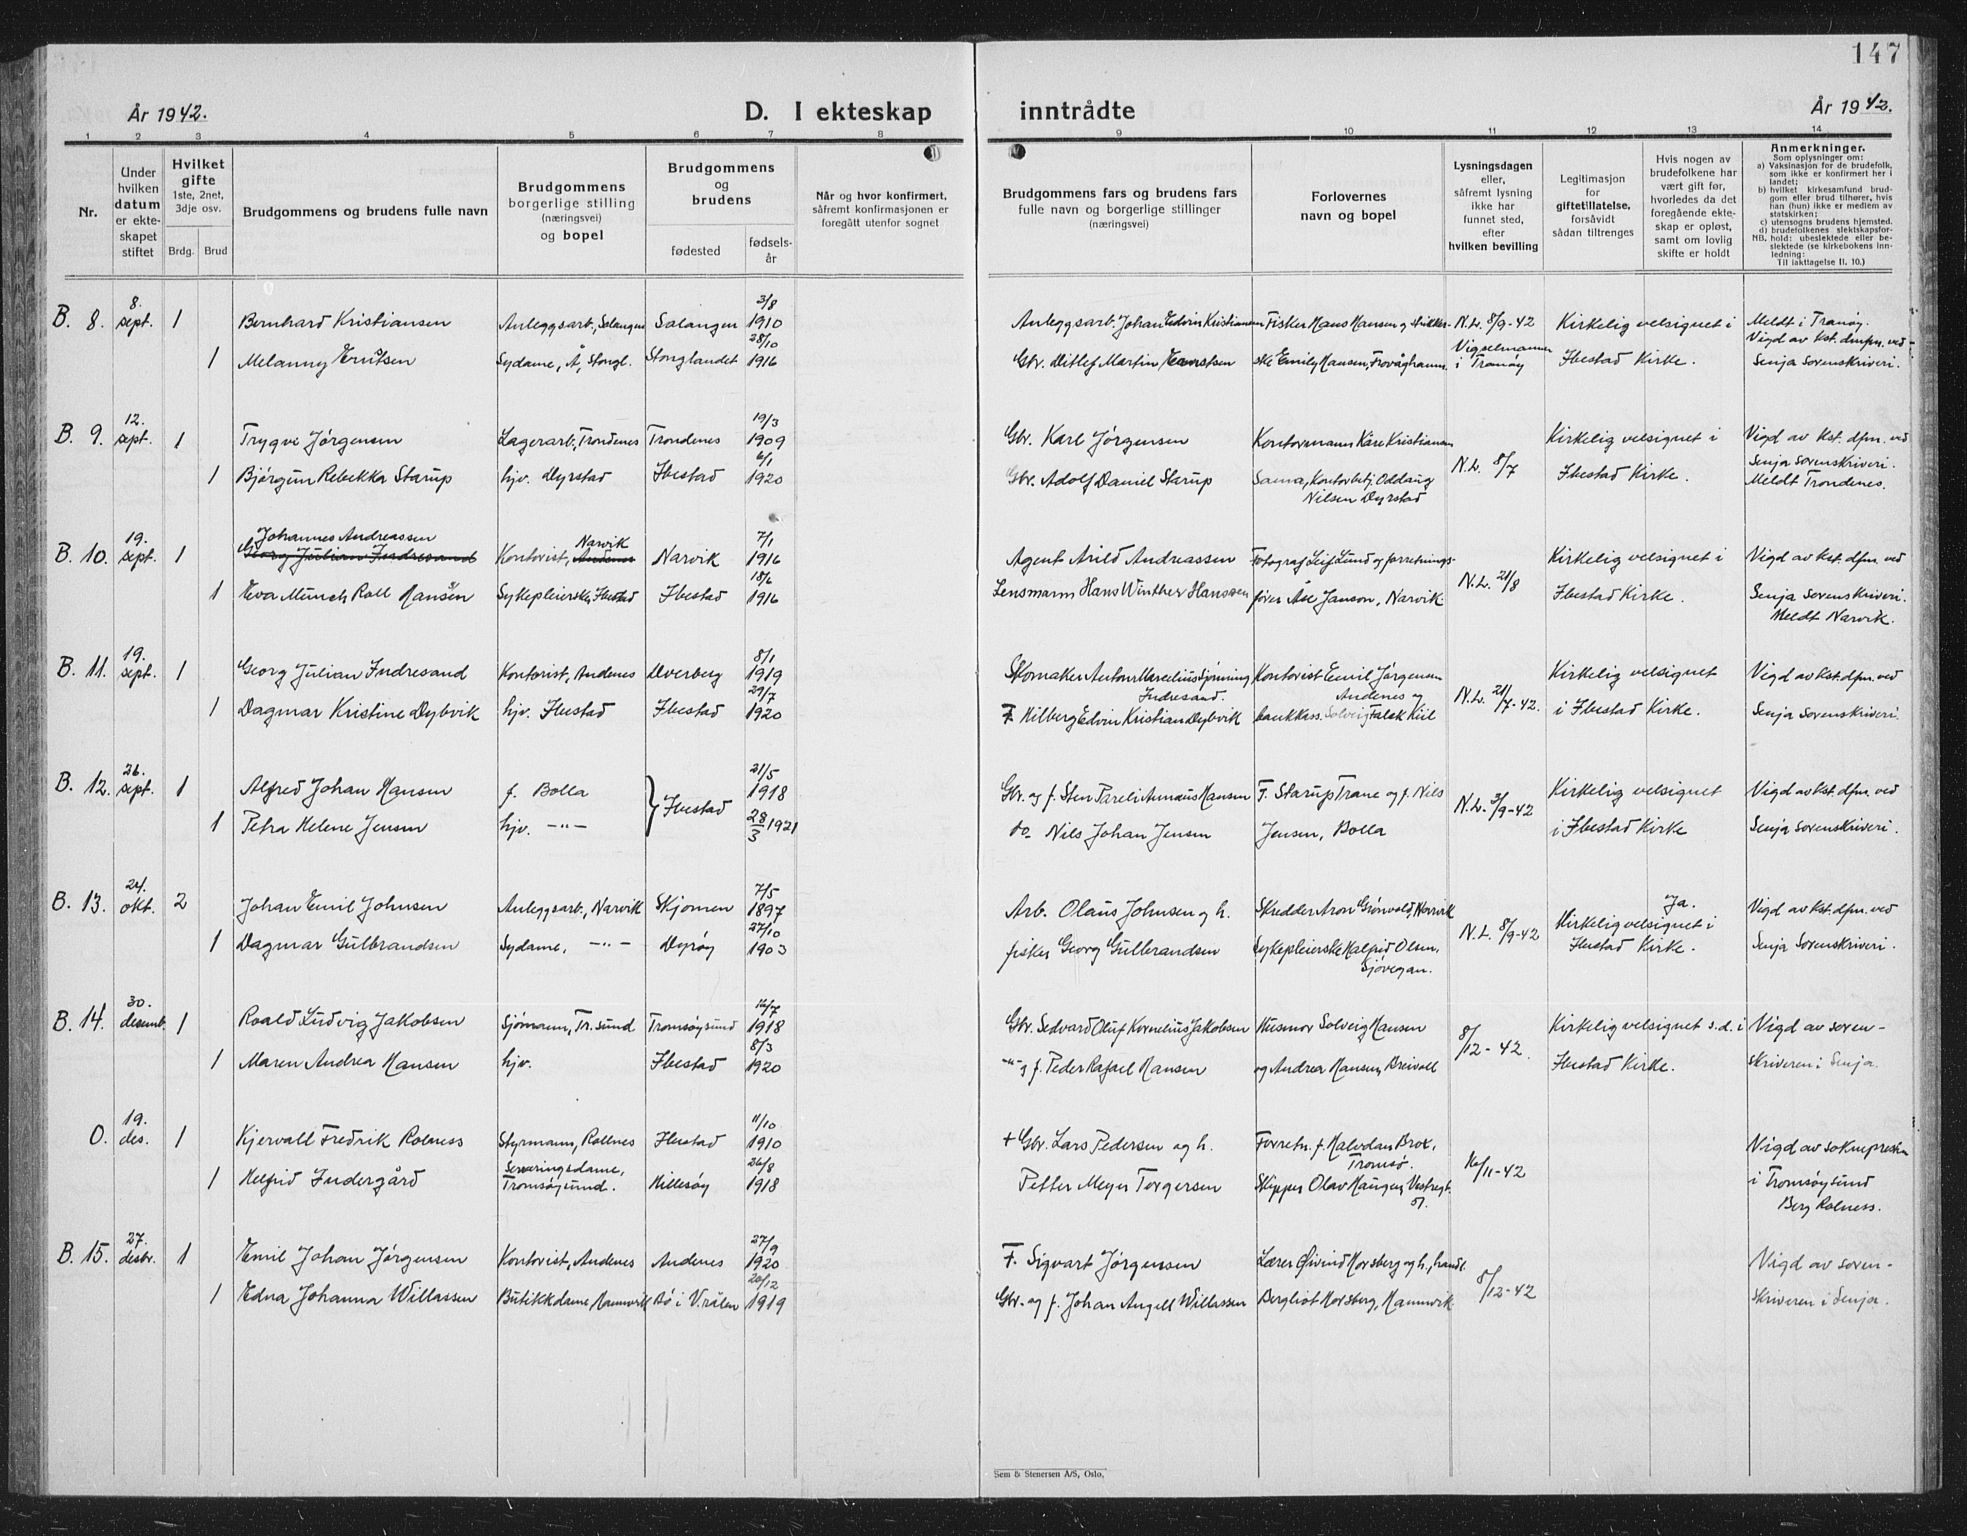 147
År 1942.
D. I ekteskap
inntrådte
År 1942.
1 2 3 4 5 6 7 8 9 10 11 12 13 14
Nr.
Under hvilken datum er ekteskapet stiftet
Hvilket gifte
1ste, 2net, 3dje osv.
Brdg. Brud
Brudgommens og brudens fulle navn
Brudgommens borgerlige stilling (næringsvei) og bopel
Brudgommens og brudens
fødested
fødselsår
Når og hvor konfirmert, såfremt konfirmasjonen er foregått utenfor sognet
Brudgommens fars og brudens fars fulle navn og borgerlige stillinger (næringsvei)
Forlovernes navn og bopel
Lysningsdagen eller, såfremt lysning ikke har funnet sted, efter hvilken bevilling
Legitimasjon for giftetillatelse, forsåvidt sådan tiltrenges
Hvis nogen av brudefolkene har vært gift før, hvorledes da det foregående ekteskap er opløst, samt om lovlig skifte er holdt
Anmerkninger.
Som oplysninger om:
a) Vaksinasjon for de brudefolk, som ikke er konfirmert her i landet;
b) hvilket kirkesamfund brudgom eller brud tilhører, hvis han (hun) ikke er medlem av statskirken;
c) utensogns brudens hjemsted.
d) brudefolkenes slektskapsforhold: ubeslektede eller beslektede (se kirkebokens innledning:
NB. Til iakttagelse II. 10.)
B. 8. 8. sept. 1 Bernhard Kristiansen Anleggsarb., Salangen Salangen 3/8 1910 Anleggsarb. Johan Edvin Kristiansen Fisker Hans Hansen og N.L. 8/9-42 Kirkelig velsignet i Meldt i Tranøy. Vigd av kst. dmfm. ved
1 Melanny Enutsen Sydame, Å, Stongl. Stonglandet 28/10 1916 Gbr. Ditlef Martin Emily Hansen, Frovåghamn. Vigselmannen i Tranøy Ibestad Kirke. Senja Sorenskriveri.
B. 9. 12. sept. 1 Trygve Jørgensen Lagerarb., Trondenes Trondenes 19/3 1909 Gbr. Karl Jørgensen Kontormann Kåre Kristiansen N.L. 8/7 Kirkelig velsignet i Vigd av kst. dfm. ved
1 Bjørgun Rebekka Starup hjv. Dyrstad Ibestad 6/1 1920 Gbr. Adolf Daniel Starup Sama, Kontorbetj. Oddaug Nilsen Dyrstad Ibestad Kirke. Senja Sorenskriveri. Meldt Trondenes.
B. 10. 19. sept. 1 Johannes Andreassen Georg Julian Indresand Kontorist, Narvik Andenes Narvik 7/1 1916 Agent Arild Andreassen Fotograf Leif Lund og forretnings- N.L. 21/8 Kirkelig velsignet i Vigd av kst. dfm. ved
1 Eva Münch Roll Hansen Sykepleierske, Ibestad Ibestad 18/6 1916 Lensmann Hans Winther Hanssen fører Åse Janson, Narvik Ibestad Kirke. Senja Sorenskriveri. Meldt Narvik.
B. 11. 19. sept. 1 Georg Julian Indresand Kontorist, Andenes Dverberg 8/1 1919 Skomaker Anton Marcelius Indresand. Kontorist Emil Jørgensen Andenes og N.L. 21/7-42. Kirkelig velsignet Vigd av kst. dfm. ved
1 Dagmar Kristine Dybvik hjv. Ibestad Ibestad 29/7 1920 F. Hilberg Edvin Kristian Dybvik bankkass. Solveig Falck Kiil i Ibestad Kirke. Senja Sorenskriveri.
B. 12. 26. sept. 1 Alfred Johan Hansen f. Bolla Ibestad 21/5 1918 Gbr. og f. Sten Pareli Amæus Hansen F. Starup Trane og f. Nils N.L. 3/9-42 Kirkelig velsignet Vigd av kst. dfm. ved
1 Petra Helene Jensen hjv. -"- 28/3 1921 do Nils Johan Jensen Jensen, Bolla i Ibestad Kirke Senja Sorenskriveri.
B. 13. 24. okt. 2 Johan Emil Johnsen Anleggsarb., Narvik Skjomen 7/5 1897 Arb. Olaus Johnsen og h. Skredder Aron Grønvold, Narvik N.L. 8/9-42 Kirkelig velsignet i Ja. Vigd av kst. dfm. ved
1 Dagmar Gulbrandsen Sydame, -"- Dyrøy 27/10 1903 fisker Georg Gulbrandsen Sykepleierske Halfrid Olsen, Sjøvegan. Ibestad Kirke. Senja Sorenskriveri.
B. 14. 30. desemb. 1 Roald Ludvig Jakobsen Sjømann, Tr.sund Tromsøysund 16/7 1918 Gbr. Sedvard Oluf Kornelius Jakobsen Husmor Solveig Hansen 8/12-42. Kirkelig velsignet s.d. i Vigd av soren-
1 Maren Andrea Hansen hjv. Ibestad 8/3 1920 -"- f. Peder Rafael Hansen og Andrea Hansen, Breivoll Ibestad Kirke. skriveren i Senja.
O. 19. des. 1 Kjervald Fredrik Rolness Styrmann, Rollnes Ibestad 11/10 1910 + Gbr. Lars Pedersen og h. Forretn. f. Halvdan Brox, Tromsø. 16/11-42 Vigd av soknepresten
1 Helfrid Indergård Serveringsdame, Tromsøysund. Hillesøy 26/8 1918 Petter Meyer Torgersen Skipper Olav Haugen, Vestregt. 51. i Tromsøysund Berg Rolness.
B. 15. 27. desbr. 1 Emil Johan Jørgensen Kontorist, Andenes Andenes 27/9 1920 F. Sigvart Jørgensen Lærer Øivind Norsberg og h., handl. 8/12-42 Vigd av soren-
1 Edna Johanna Willassen Butikkdame, Hamnvik Bø i V.rålen 20/12 1919 Gbr. og f. Johan Angell Willassen Bergliot Norsberg, Hamnvik skriveren i Senja.
Sem & Stenersen A/S, Oslo.